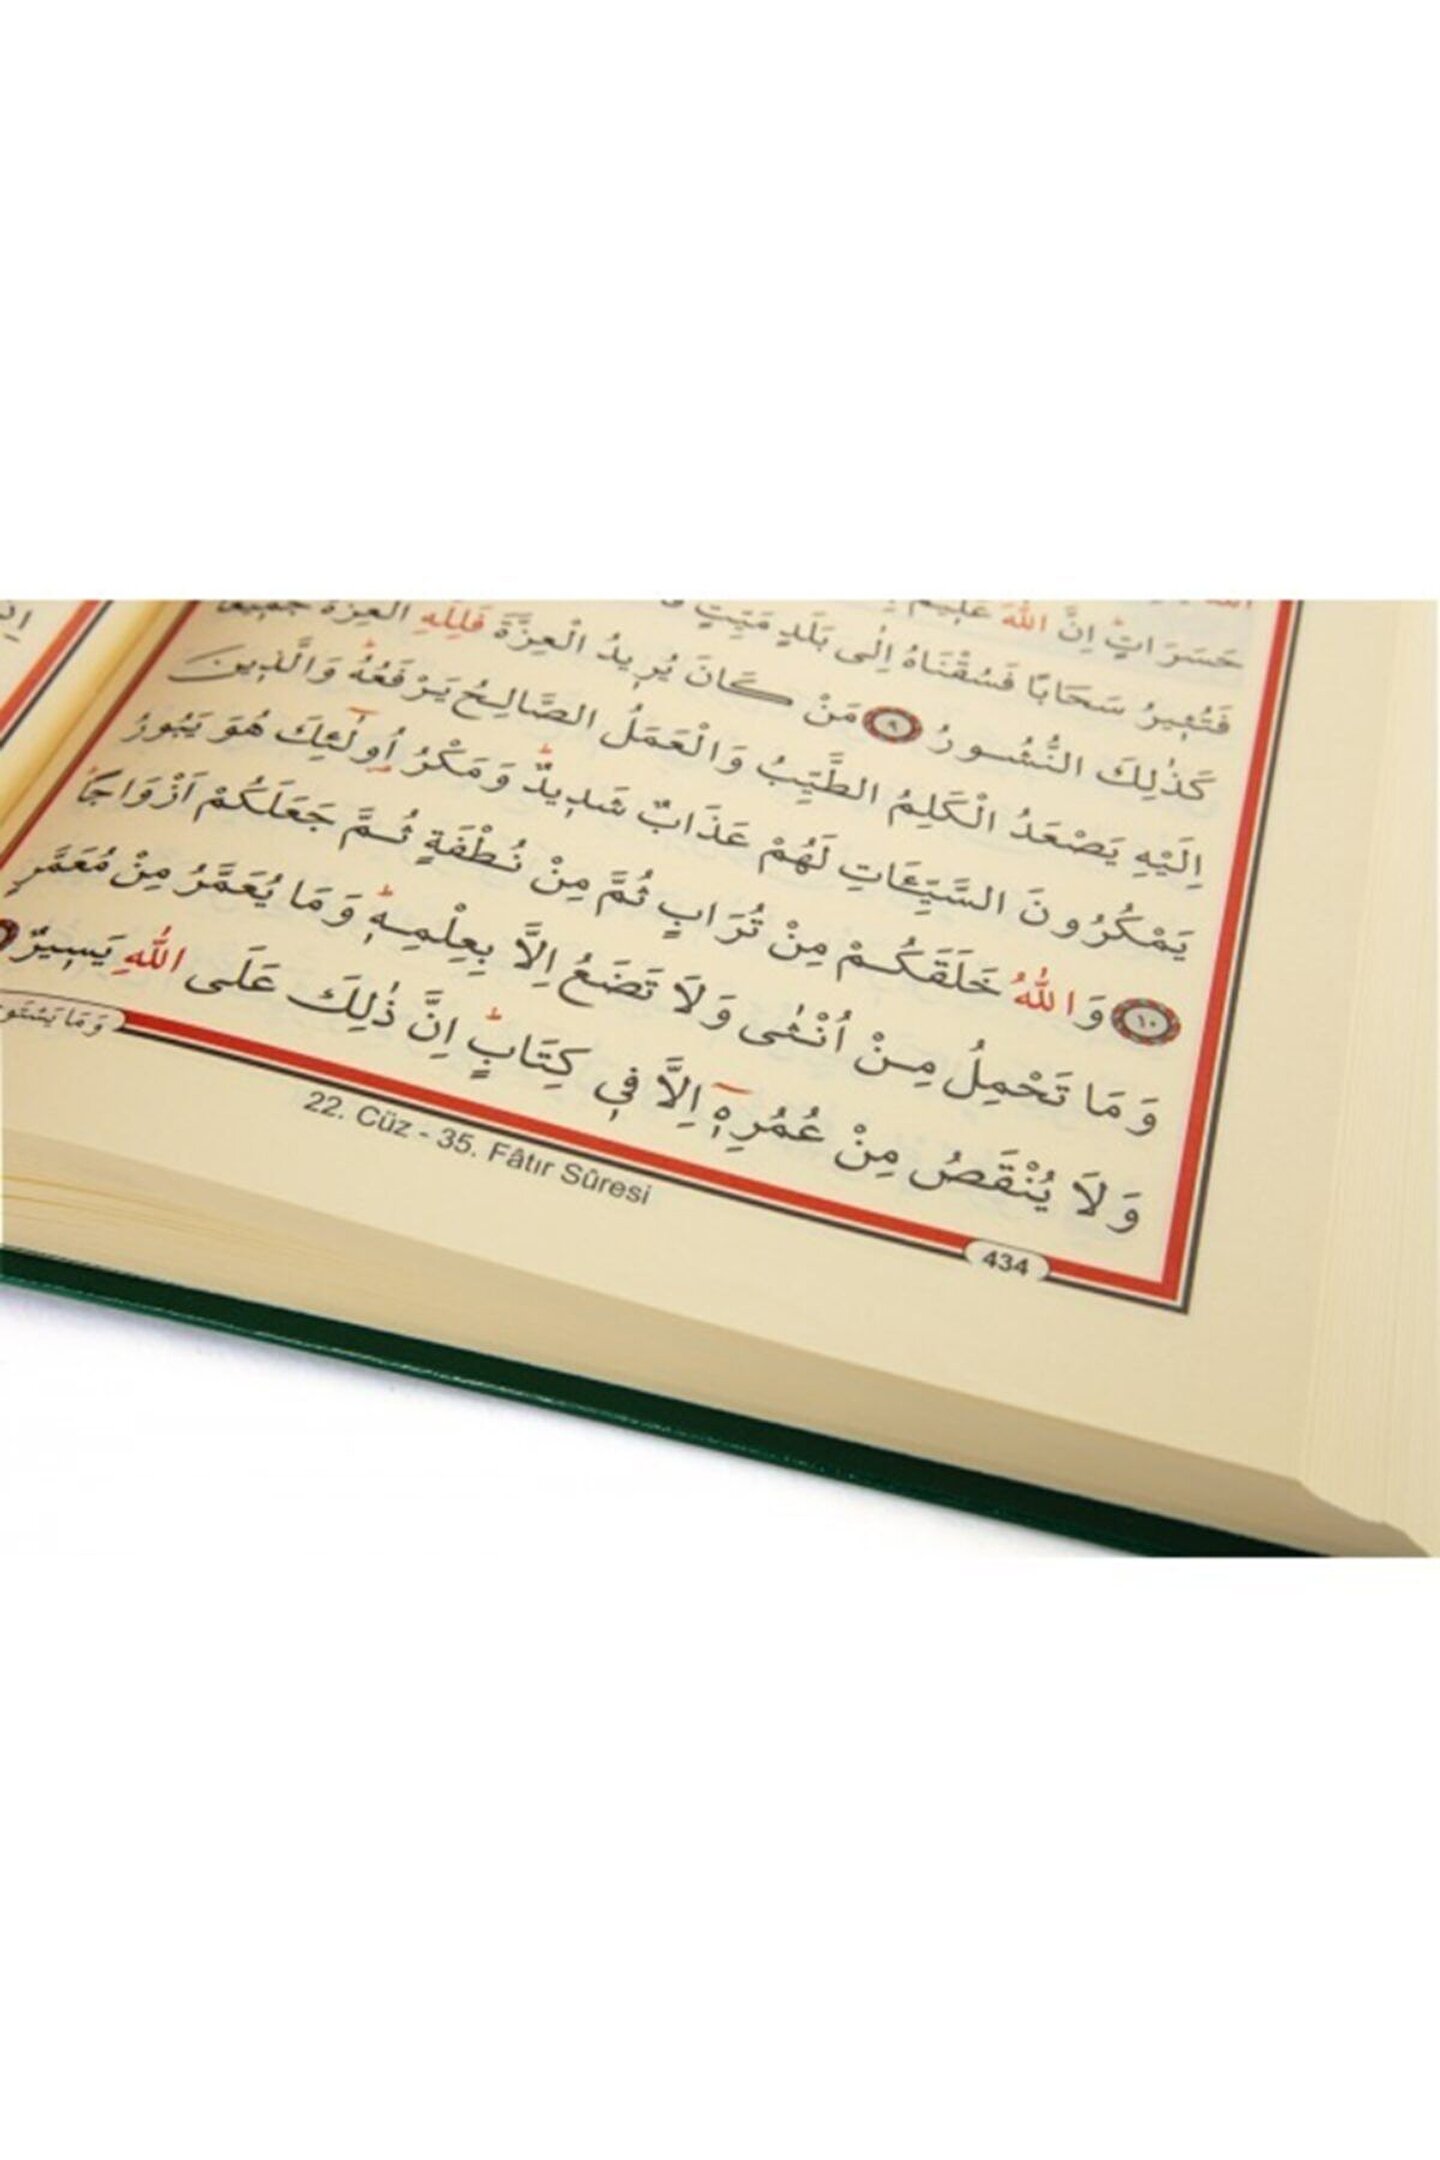 حَسَرَاتٍ اِنَّ اللّٰهَ عَلٖيمٌ
فَتُثٖيرُ سَحَابًا فَسُقْنَاهُ اِلٰى بَلَدٍ مَيِّتٍ
كَذٰلِكَ النُّشُورُ ٩ مَنْ كَانَ يُرٖيدُ الْعِزَّةَ فَلِلّٰهِ الْعِزَّةُ جَمٖيعًا
اِلَيْهِ يَصْعَدُ الْكَلِمُ الطَّيِّبُ وَالْعَمَلُ الصَّالِحُ يَرْفَعُهُ وَالَّذٖينَ
يَمْكُرُونَ السَّيِّـَٔاتِ لَهُمْ عَذَابٌ شَدٖيدٌ وَمَكْرُ اُولٰٓئِكَ هُوَ يَبُورُ
١٠ وَاللّٰهُ خَلَقَكُمْ مِنْ تُرَابٍ ثُمَّ مِنْ نُطْفَةٍ ثُمَّ جَعَلَكُمْ اَزْوَاجًا
وَمَا تَحْمِلُ مِنْ اُنْثٰى وَلَا تَضَعُ اِلَّا بِعِلْمِهٖ وَمَا يُعَمَّرُ مِنْ مُعَمَّرٍ
وَلَا يُنْقَصُ مِنْ عُمُرِهٖٓ اِلَّا فٖي كِتَابٍ اِنَّ ذٰلِكَ عَلَى اللّٰهِ يَسٖيرٌ
434
22. Cüz - 35. Fâtır Sûresi